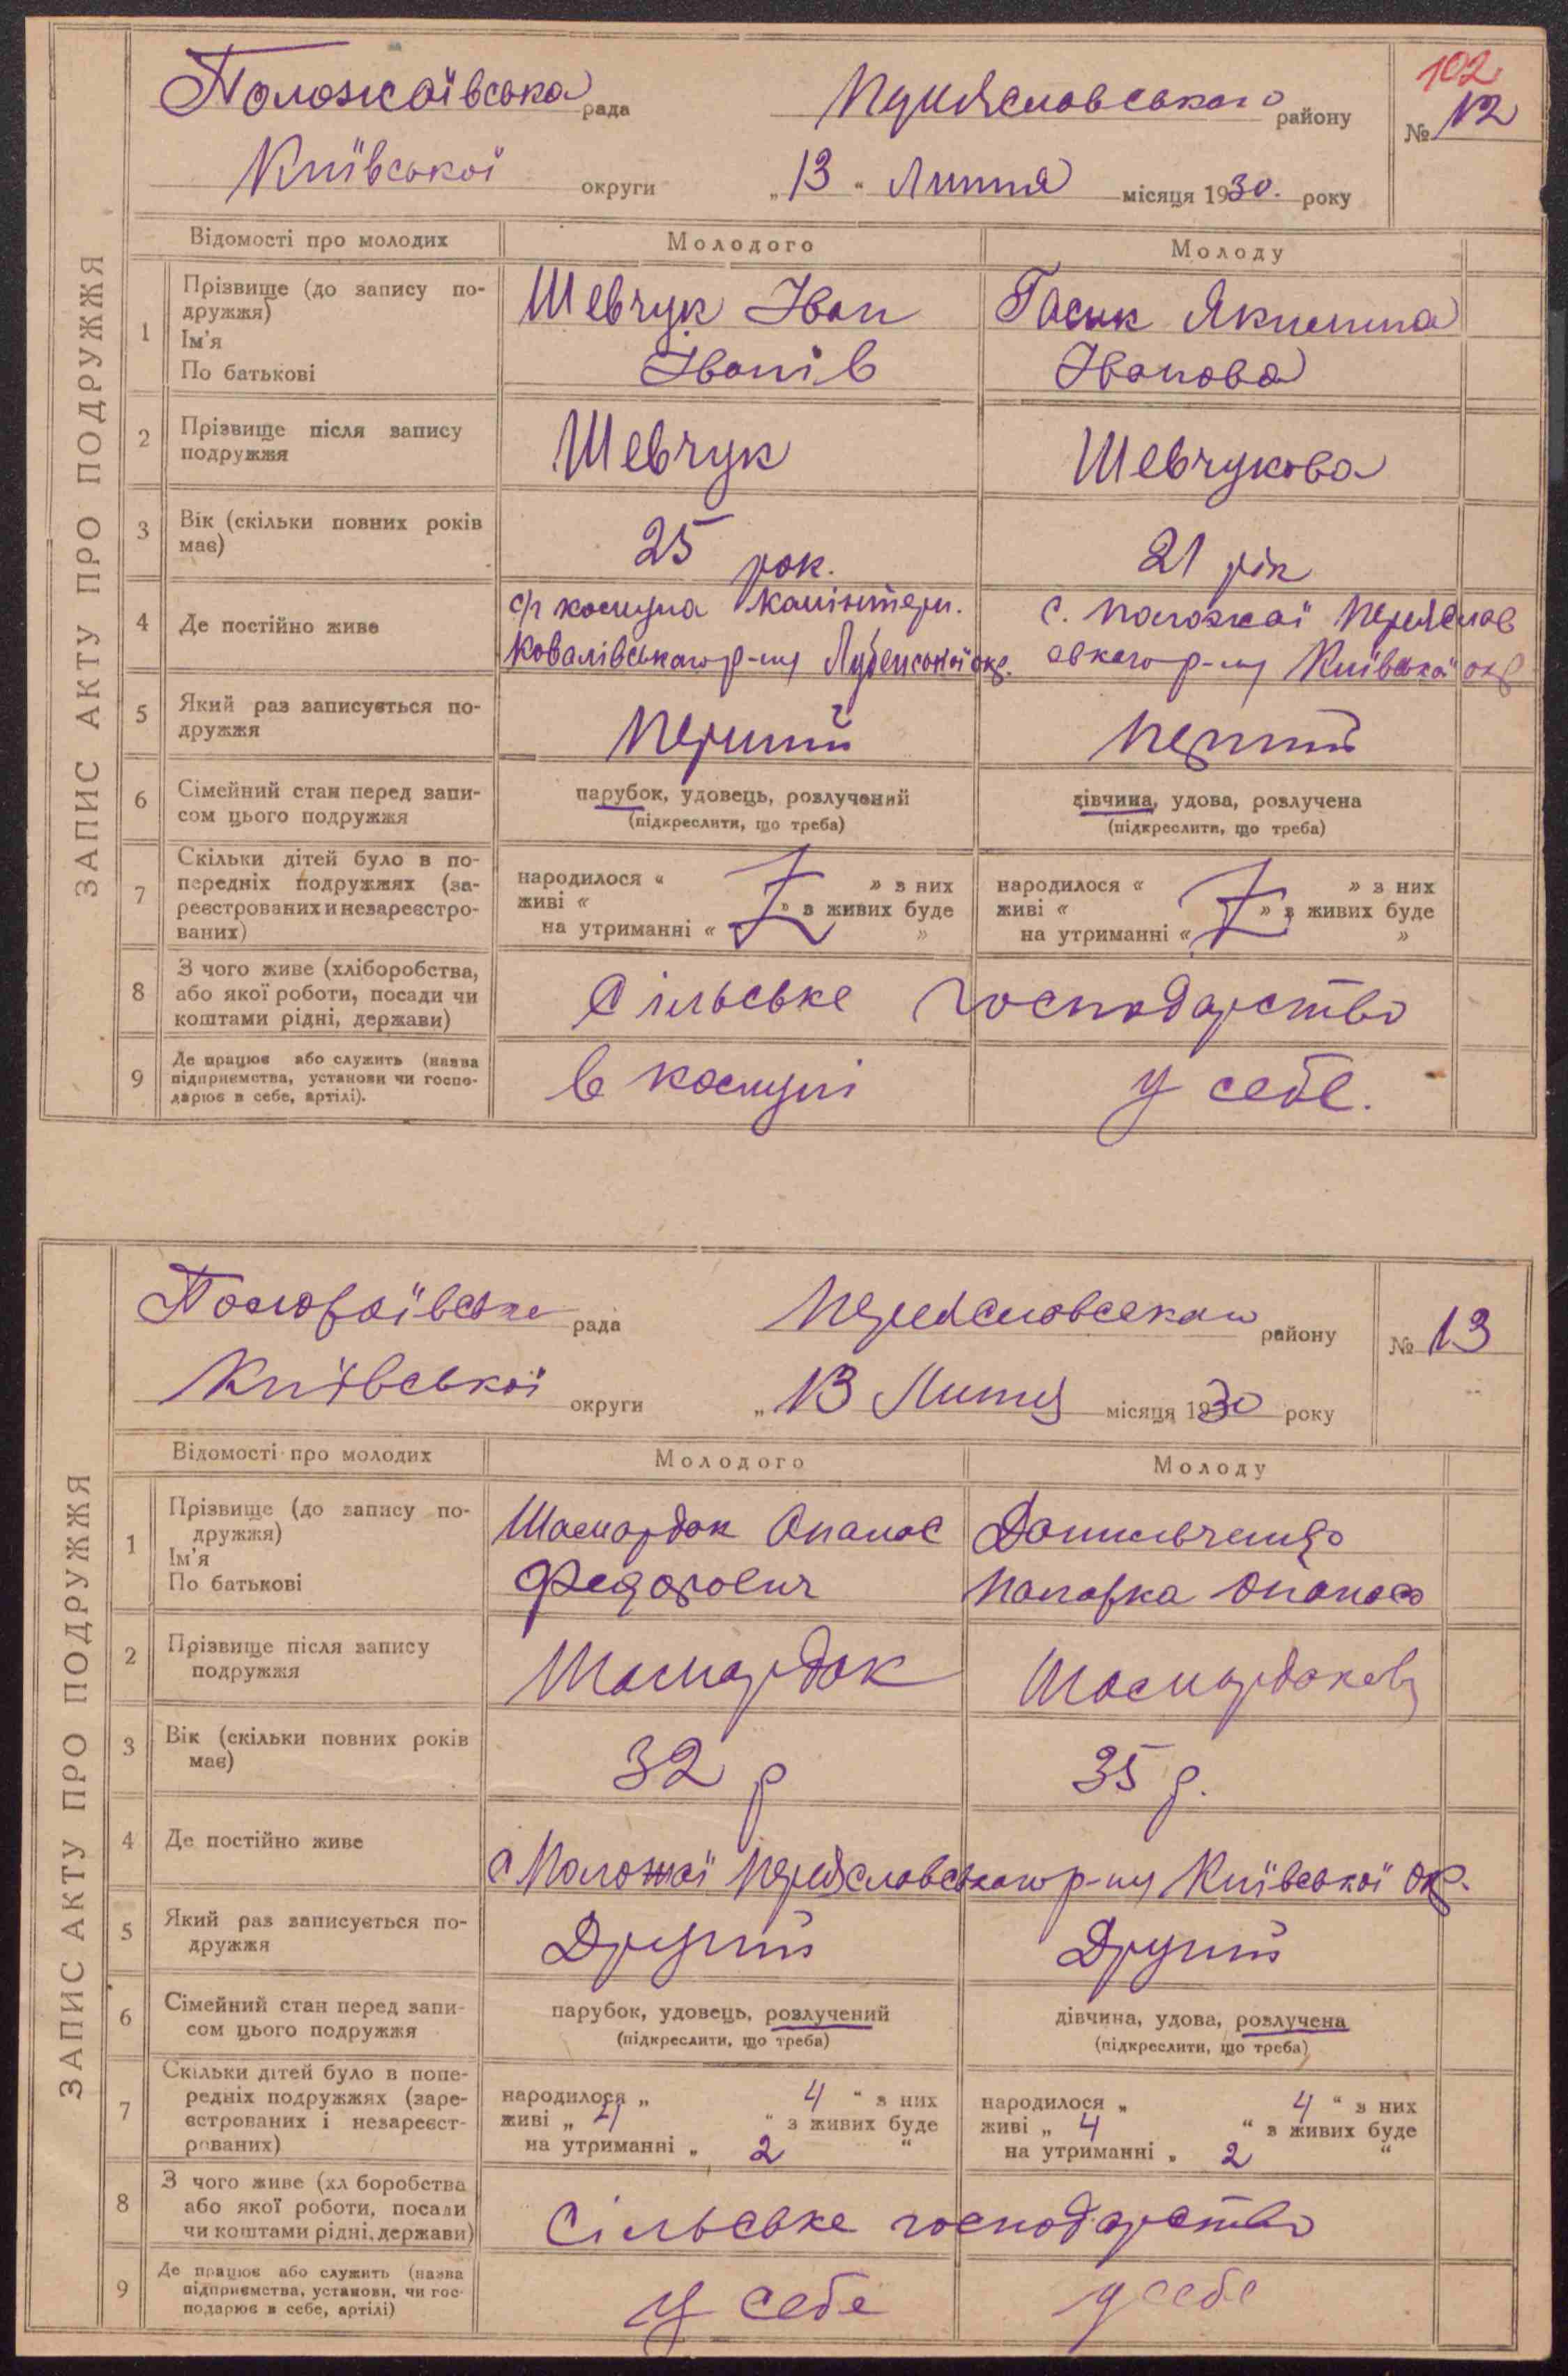 102
Положаївська рада Переяславського району № 12
Київської округи „ 13 “ Липня місяця 1930. року
ЗАПИС АКТУ ПРО ПОДРУЖЖЯ
Відомості про молодих Молодого Молоду
1 Прізвище (до запису по-
дружжя)
Ім'я
По батькові
Шевчук Іван
Іванів
Гасик Якилина
Іванова
2 Прізвище після запису
подружжя
Шевчук Шевчукова
3 Вік (скільки повних років
має)
25 рок. 21 рік
4 Де постійно живе
с/г комуна Комінтерн.
Ковалівського р-ну Лубенської окр.
с. Положаї Переяслав
ського р-ну Київської окр
5 Який раз записується по-
дружжя
Перший перший
6 Сімейний стан перед запи-
сом цього подружжя
парубок, удовець, розлучений
(підкреслити, що треба)
дівчина, удова, розлучена
(підкреслити, що треба)
7 Скільки дітей було в по-
передніх подружжях (за-
реєстрованих и незареєстро-
ваних)
народилося « » з них
живі « » з живих буде
на утриманні « »
народилося « » з них
живі « » з живих буде
на утриманні « »
8 З чого живе (хліборобства,
або якої роботи, посади чи
коштами рідні, держави)
Сільське господарство
9 Де працює або служить (назва
підприємства, установи чи госпо-
дарює в себе, артілі).
в комуні у себе.
Положаївська рада Переяславського району № 13
Київської округи „ 13 Липня місяця 1930 року
ЗАПИС АКТУ ПРО ПОДРУЖЖЯ
Відомості про молодих Молодого Молоду
1 Прізвище (до запису по-
дружжя)
Ім'я
По батькові
Шасмардак Опанас
Федорович
Данильченко
Палажка
2 Прізвище після запису
подружжя
Шасмардак Шасмардакова
3 Вік (скільки повних років
має)
32 р 35 р.
4 Де постійно живе
с Положаї Переяславського р-ну Київської окр.
5 Який раз записується по-
дружжя
Другий Другий
6 Сімейний стан перед запи-
сом цього подружжя
парубок, удовець, розлучений
(підкреслити, що треба)
дівчина, удова, розлучена
(підкреслити, що треба)
7 Скільки дітей було в попе-
редніх подружжях (заре-
єстрованих і незареєст-
рованих)
народилося „ 4 “ з них
живі „ 4 “ з живих буде
на утриманні „ 2 “
народилося „ 4 “ з них
живі „ 4 “ з живих буде
на утриманні „ 2 “
8 З чого живе (хл боробства
або якої роботи, посади
чи коштами рідні, держави)
Сільське господарство
9 Де працює або служить (назва
підприємства, установи, чи гос-
подарює в себе, артілі)
у себе у себе